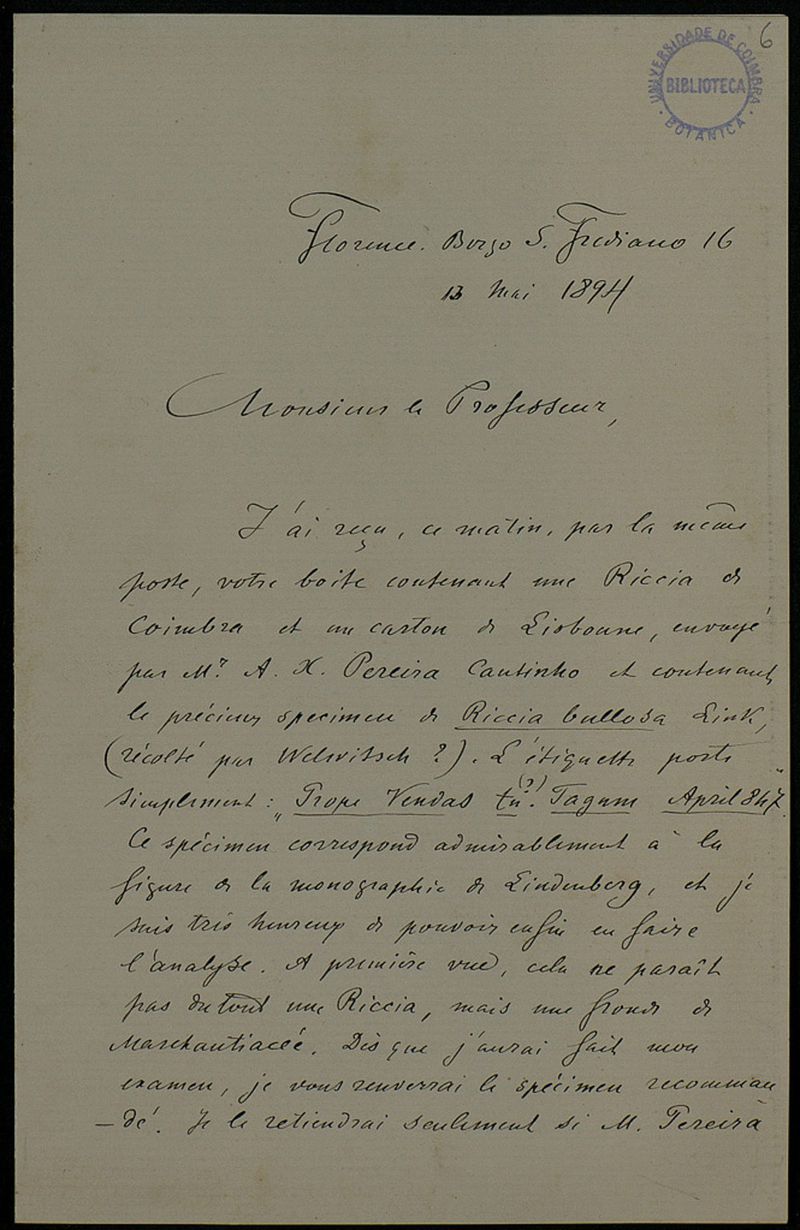 6
UNIVERSIDADE DE COIMBRA
BIBLIOTECA
BOTANICA
Florence. Borgo S. Frediano 16
13 Mai 1894
Monsieur le Professeur,
J'ai reçu, ce matin, par la même
poste, votre boite contenant une Riccia de
Coimbra et un carton de Lisbonne, envoyé
par Mr. A. X. Pereira Cautinho et contenant
le précieux specimen de Riccia bullosa Link,
(récolté par Welwitsch ?). L'étiquette porte
simplement : "Prope Vendas tu(?). Tagum April 847."
Ce spécimen correspond admirablement à la
figure de la monographie de Lindenberg, et je
suis très heureux de pouvoir enfin en faire
l'analyse. A première vue, cela ne paraît
pas du tout une Riccia, mais une fronde de
Marchantiacée. Dès que j'aurai fait mon
examen, je vous renverrai le spécimen recomman
-dé. Je le retiendrai seulement si M. Pereira